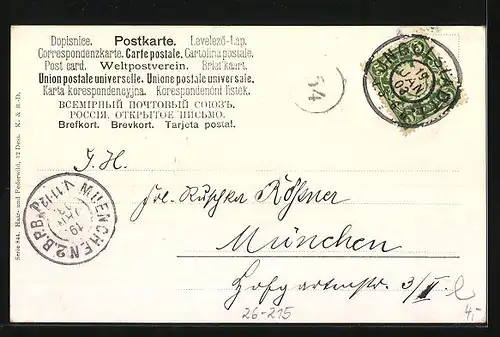 Dopisnice. Postkarte. Levelező-Lap.
Correspondenzkarte. Carte postale. Cartolina postale.
Post card. Weltpostverein. Briefkaart.
Union postale universelle. Unione postale universale.
Karta korespondencyjna. Korespondenčni listek.
ВСЕМІРНЫЙ ПОЧТОВЫЙ СОЮЗЪ.
РОССІЯ. ОТКРЫТОЕ ПИСЬМО.
Brefkort. Brevkort. Tarjeta postal.
54
MUENCHEN 2.B.P.
19.
JAN
Serie 844. Haar- und Federwild, 12 Dess. K. & B.-D.
I. H.
Frl. Ruschka Rößner
München
Hofgartenstr. 3/II
26-215
4,-